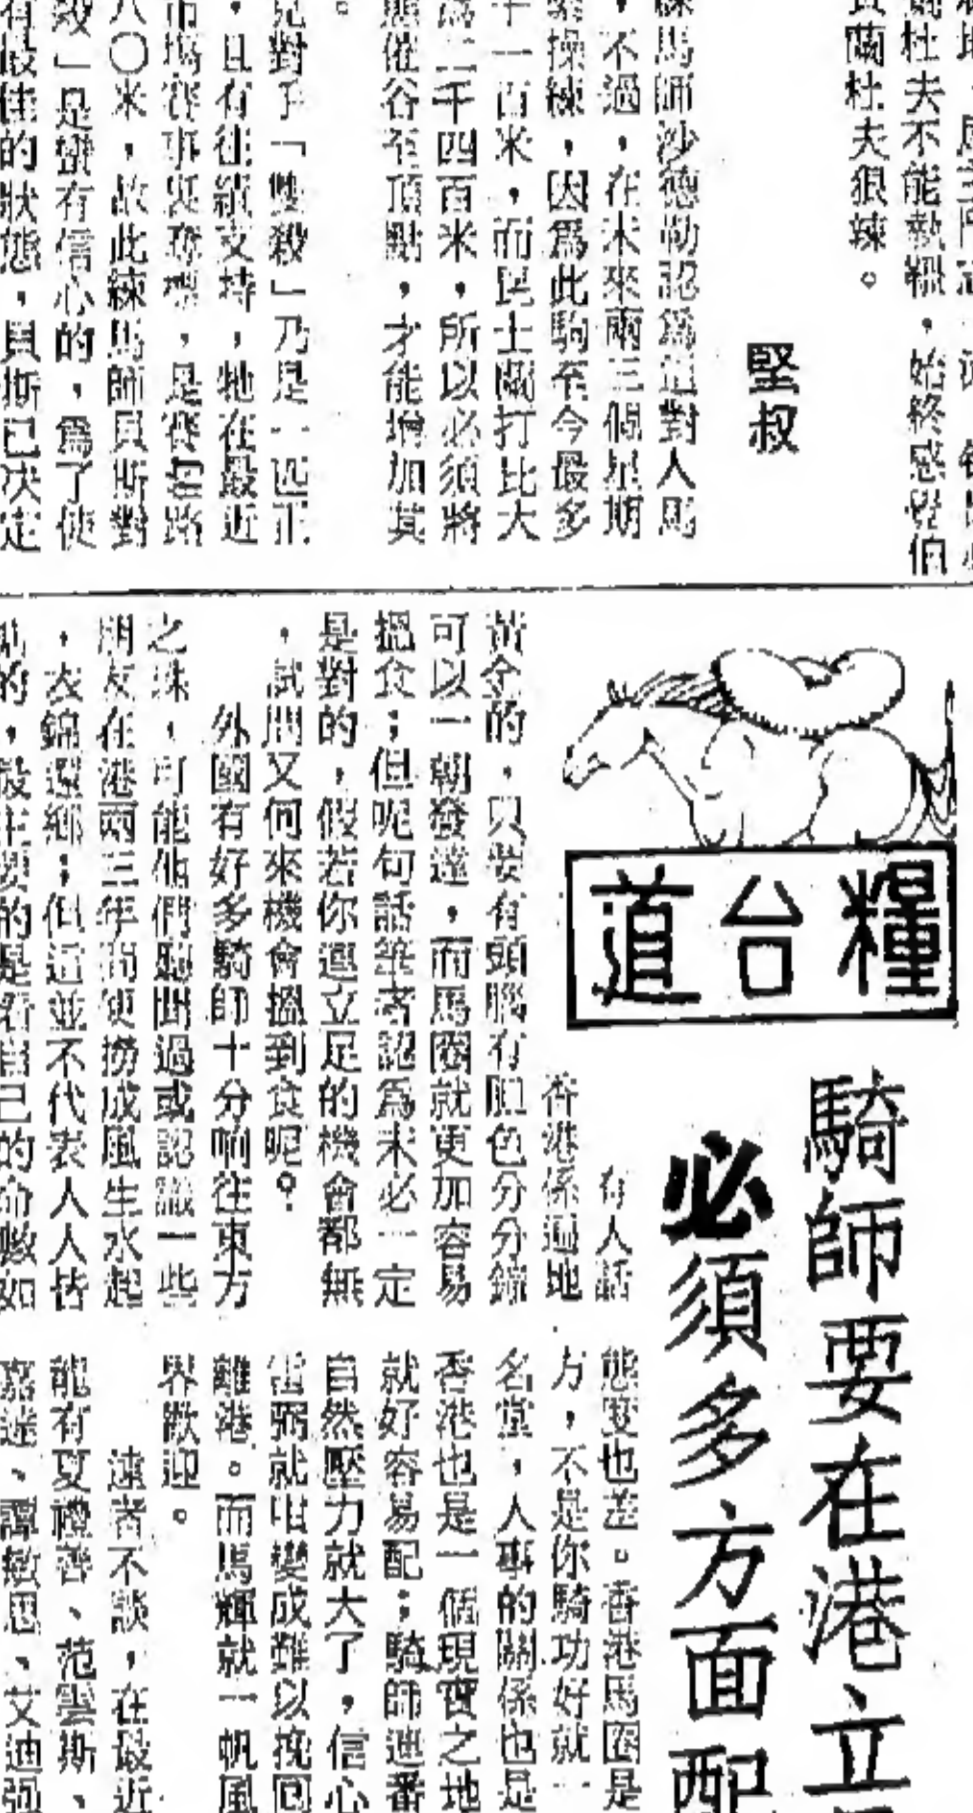 杜夫不能執韁，始終感覺伯
蘭杜夫狠辣。
堅叔
練馬師沙德勒認爲這對人馬
，不過，在未來兩三個星期
操練，因爲此駒至今最多
千一百米，而民士蘭打比大
爲二千四百米，所以必須將
催谷至頂點，才能增加其
。
對手「雙殺」乃是一匹正
，且有往績支持，牠在最近
賽事裏奪標，是賽程路
八〇米，故此練馬師貝斯對
殺」是蠻有信心的，爲了使
有最佳的狀態，貝斯已决定
糧台道
騎師要在港立
必須多方面配
有人話
香港係遍地
黃金的，只要有頭腦有胆色分分鐘
可以一朝發達，而馬圈就更加容易
搵食；但呢句話筆者認爲未必一定
是對的，假若你連立足的機會都無
，試問又何來機會搵到食呢？
外國有好多騎師十分响往東方
之珠，可能他們聽聞過或認識一些
朋友在港兩三年間便撈成風生水起
，衣錦還鄉；但這並不代表人人皆
的，最主要的是看自己的命數如
態度也差。香港馬圈是
方，不是你騎功好就一
名堂，人事的關係也是
香港也是一個現實之地
就好容易配；騎師連番
自然壓力就大了，信心
弱就咁變成難以挽回
離港。而馬輝就一帆風
界歡迎。
遠者不談，在最近
龍有夏禮善、范雲斯、
嘉迷、譚敏思、艾迪